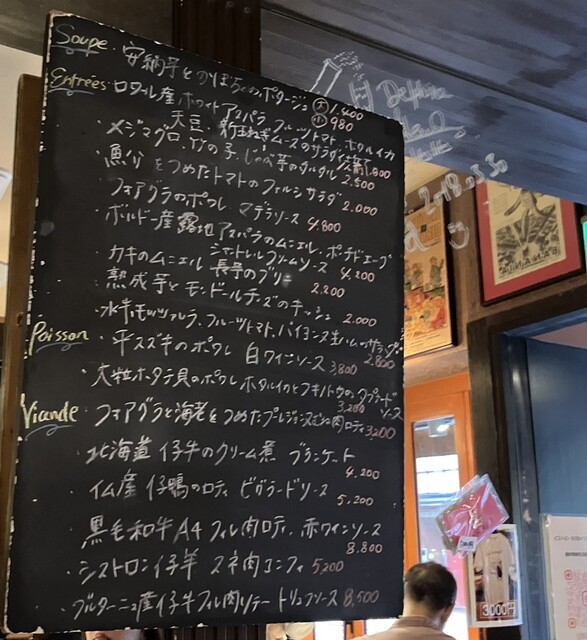 Soupe・安納芋とのぼうくのポタージュ 大 1,400
小 980
Entrées ロワール産ホワイトアスパラ フルーツトマト ホタルイカ
天豆、新玉ねぎムースのサラダ仕立て 1,800
・メジマグロ、竹の子、じゃが芋のタルタル 2,500
・魚介をつめたトマトのファルシサラダ 2.000
・フォアグラのポワレ マデラソース 4.800
・ボルドー産露地アスパラのムニエル、ポーチドエッグ
クリームソース 4,200
・カキのムニエル 長芋のブリニ 2,200
・熟成芋とモンドールチーズのキッシュ 2.000
・水牛モッツァレラ、フルーツトマト、バイヨンヌ生ハムのサラダ 2.800
Poisson・平スズキのポワレ 白ワインソース 3,800
・大粒ホタテ貝のポワレ ホタルイカとフキノトウの ソース
3,200
Viande・フォアグラと海老をつめた 肉ロティ 3,200
・北海道 仔牛のクリーム煮 ブランケット
4,200
・イム産 仔鴨のロティ ビガラードソース
5,200
・黒毛和牛A4フィレ肉ロティ、赤ワインソース
8.800
・シストロン仔羊 スネ肉コンフィ 5,200
・ブルターニュ産仔牛フィレ肉ソテー トリュフソース 8,500
3000円